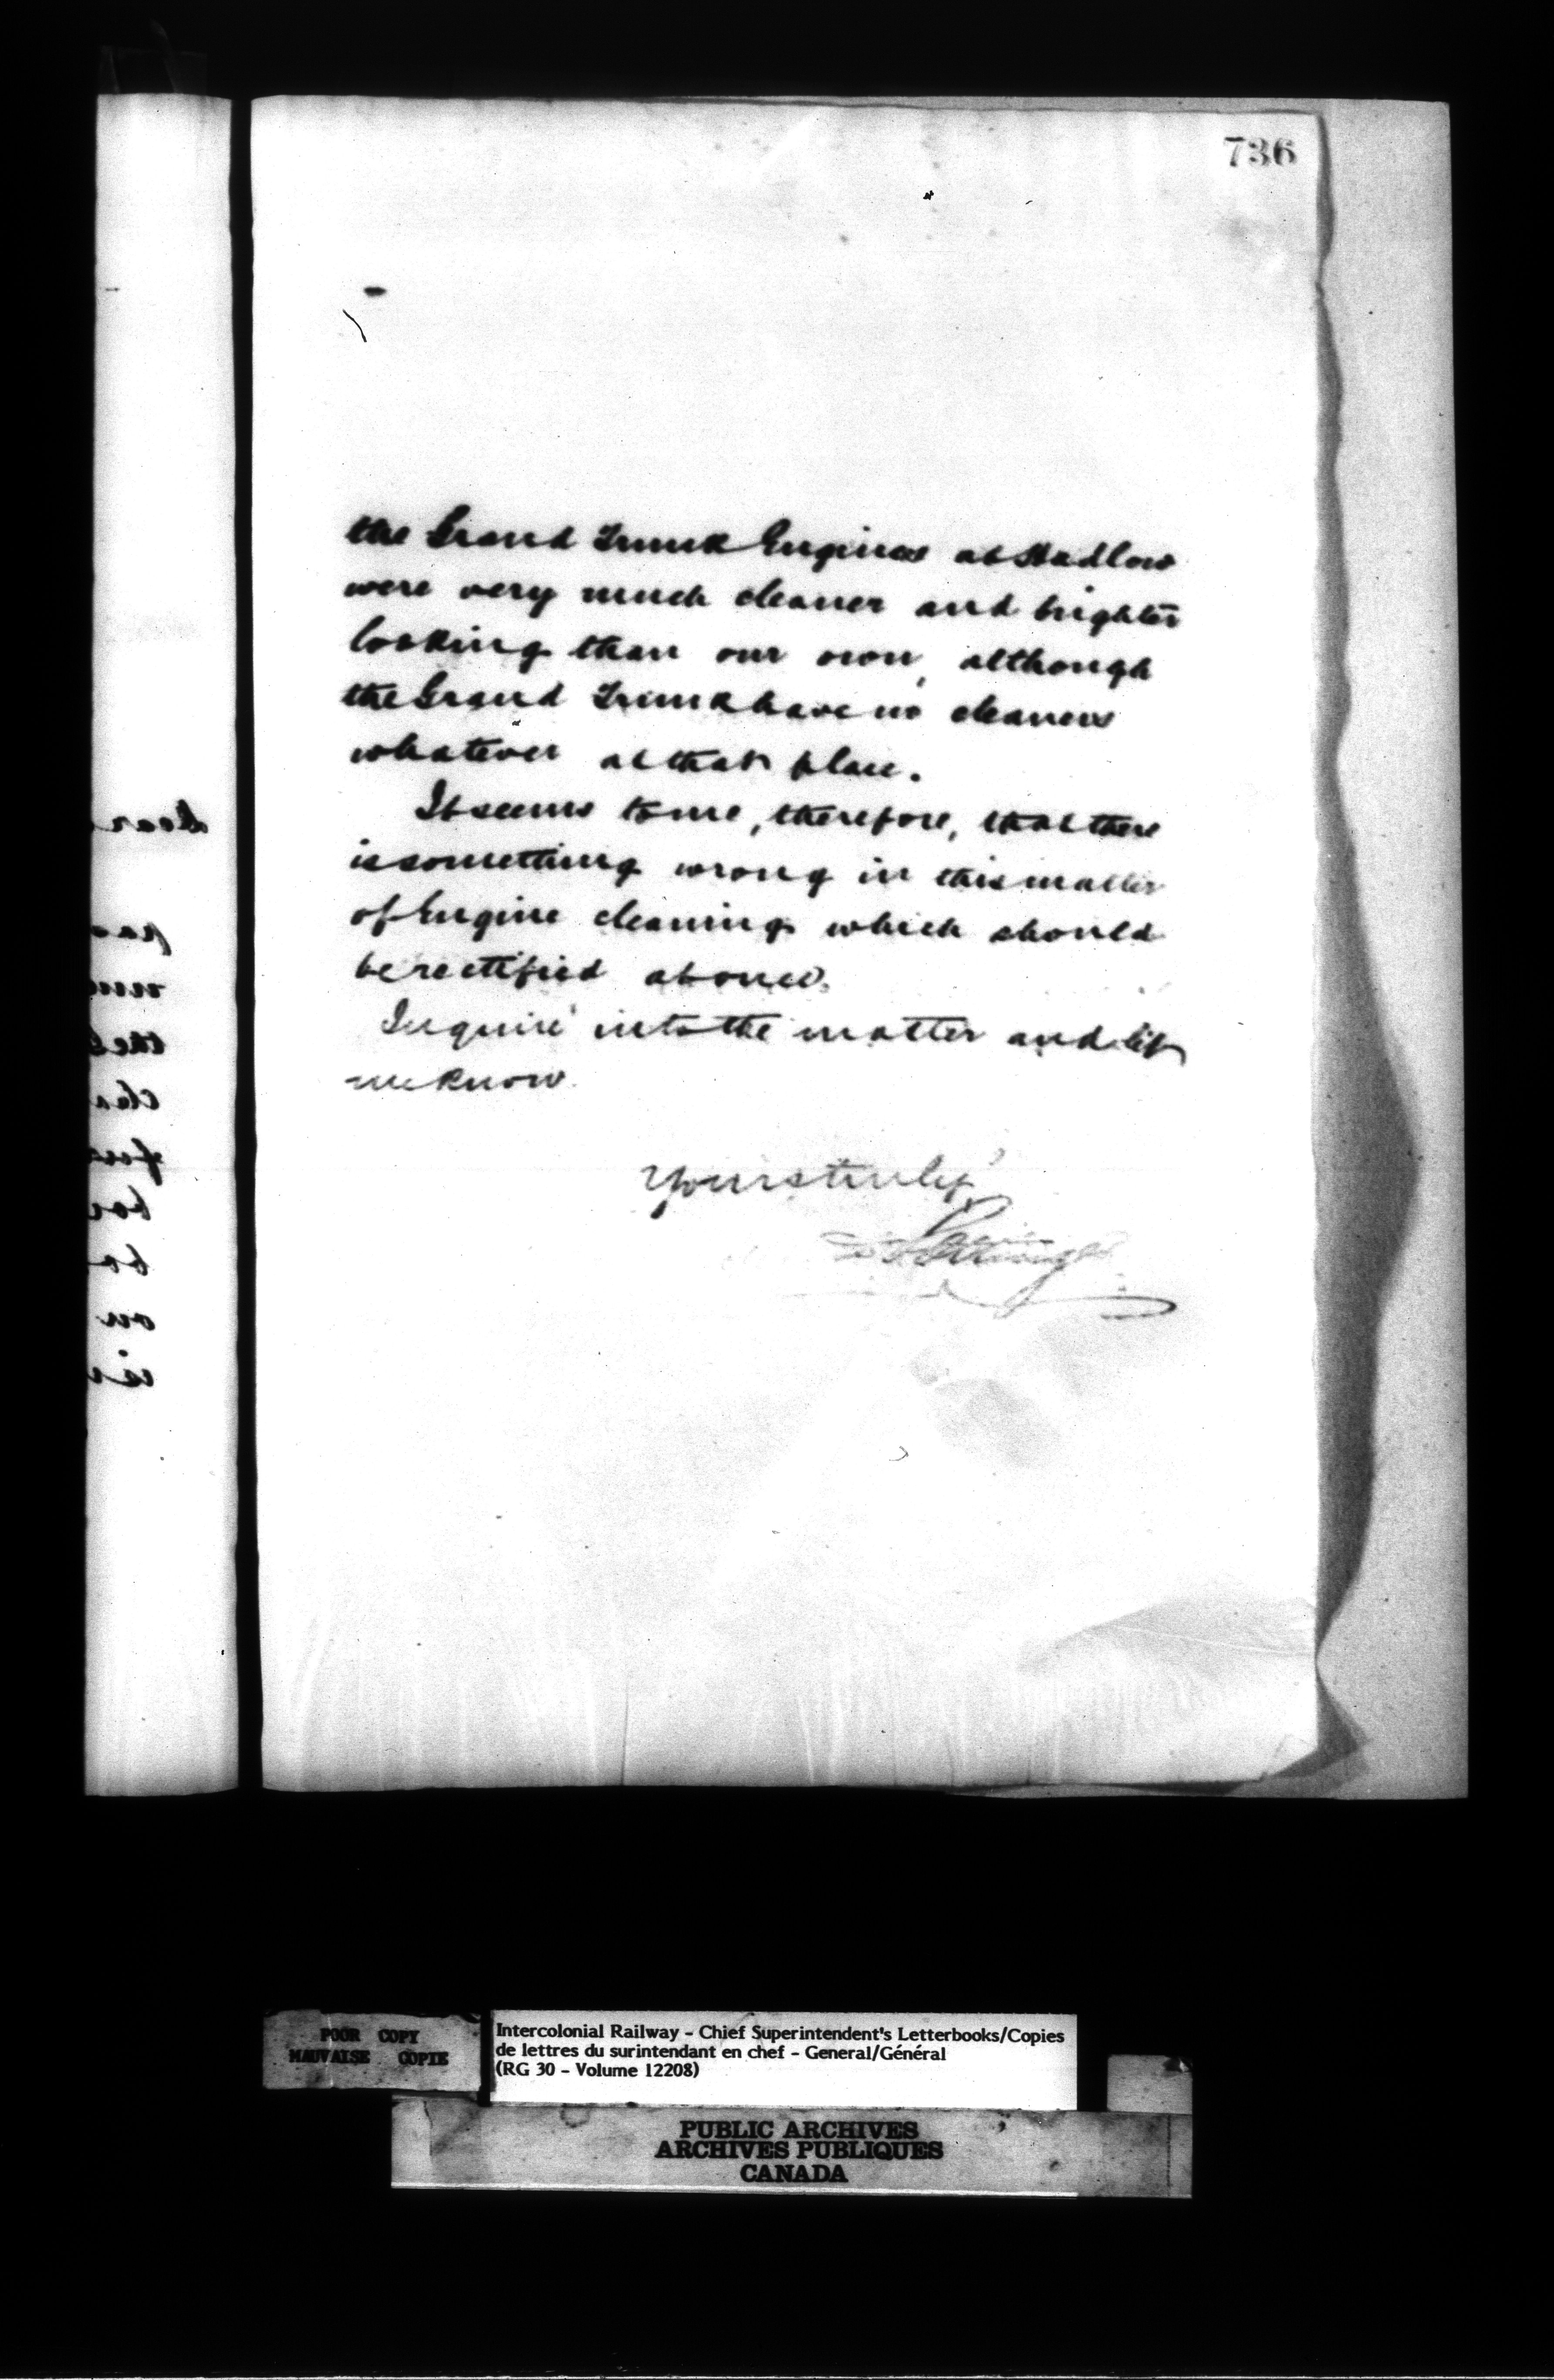 736
the Grand Trunk Engines at Hadlow
were very much cleaner and brighter
looking than our own, although
the Grand Trunk have no cleaners
whatever at that place.
It seems to me, therefore, that there
is something wrong in this matter
of Engine cleaning which should
be rectified at once.
Inquire into the matter and let
me know.
Yours truly
D Pottinger
POOR COPY
MAUVAISE COPIE
Intercolonial Railway - Chief Superintendent's Letterbooks/Copies
de lettres du surintendant en chef - General/Général
(RG 30 - Volume 12208)
PUBLIC ARCHIVES
ARCHIVES PUBLIQUES
CANADA